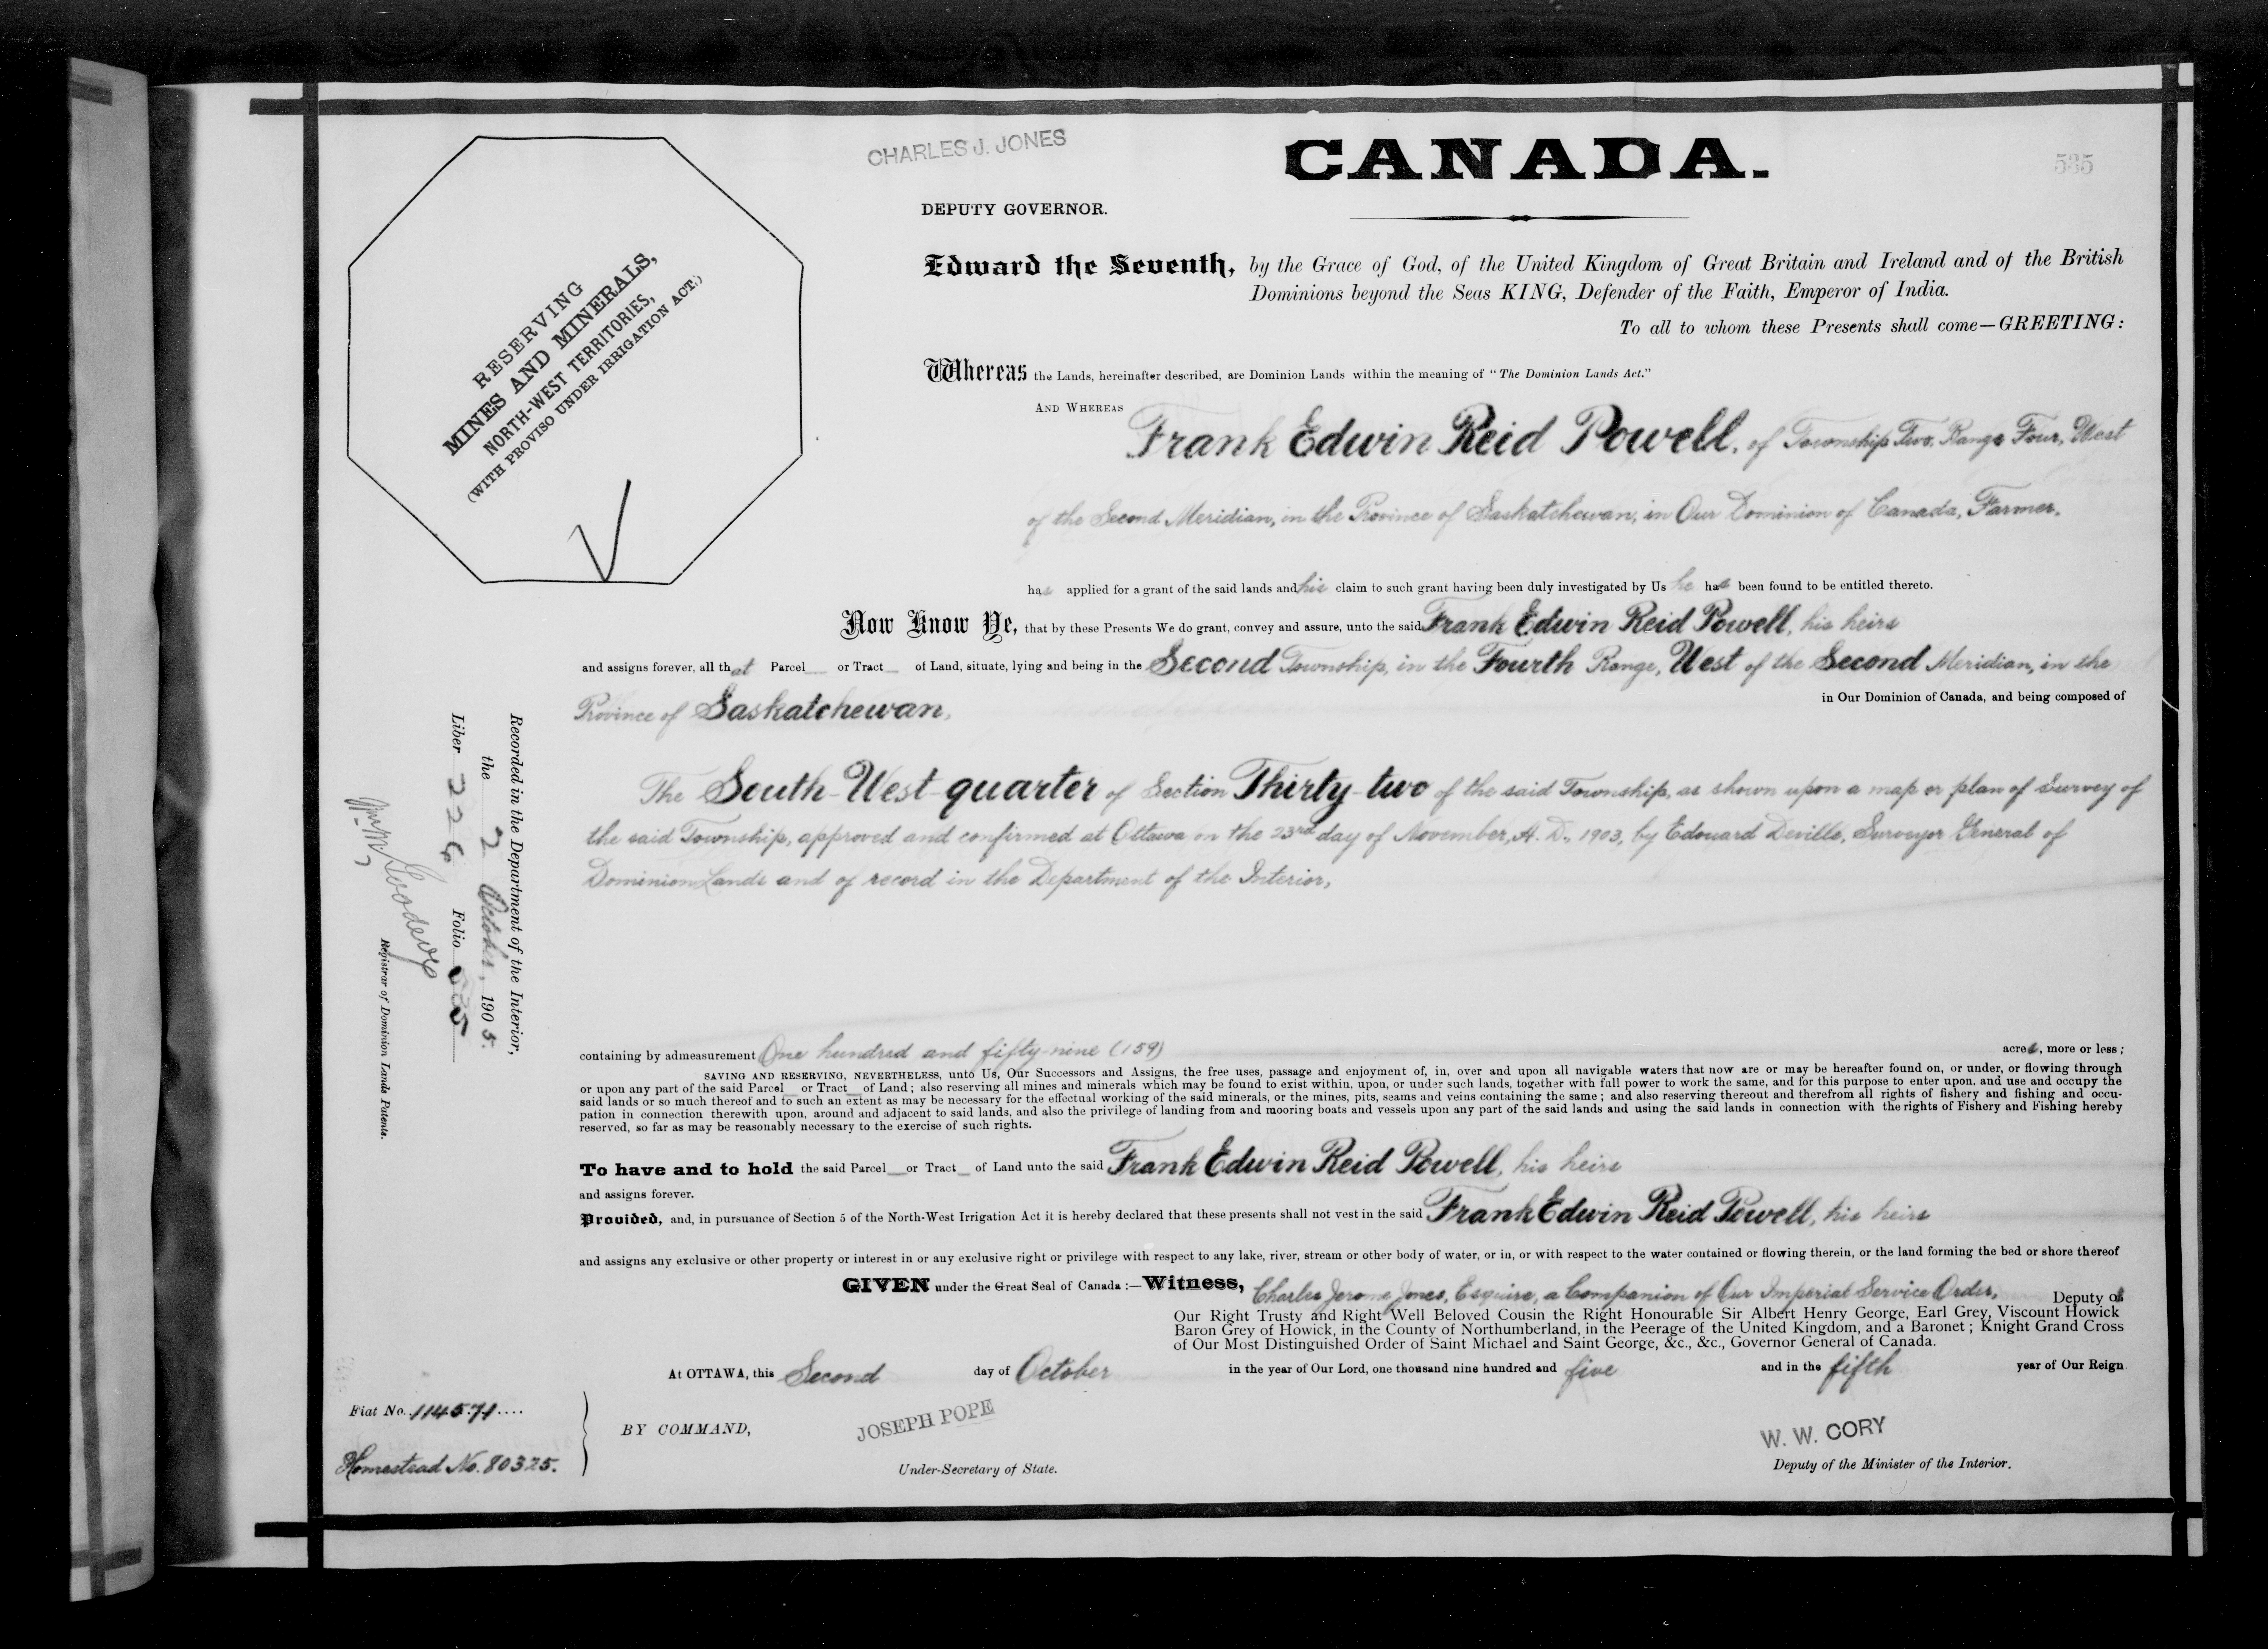 CHARLES J. JONES
CANADA.
535
DEPUTY GOVERNOR.
RESERVING
MINES AND MINERALS,
NORTH-WEST TERRITORIES,
(WITH PROVISO UNDER IRRIGATION ACT.)
Edward the Seventh, by the Grace of God, of the United Kingdom of Great Britain and Ireland and of the British
Dominions beyond the Seas KING, Defender of the Faith, Emperor of India.
To all to whom these Presents shall come—GREETING:
Whereas the Lands, hereinafter described, are Dominion Lands within the meaning of "The Dominion Lands Act."
AND WHEREAS Frank Edwin Reid Powell, of Township Two, Range Four, West
of the Second Meridian, in the Province of Saskatchewan, in Our Dominion of Canada, Farmer,
has applied for a grant of the said lands and his claim to such grant having been duly investigated by Us he has been found to be entitled thereto.
Now Know Ye, that by these Presents We do grant, convey and assure, unto the said Frank Edwin Reid Powell, his heirs
and assigns forever, all that Parcel or Tract of Land, situate, lying and being in the Second Township, in the Fourth Range, West of the Second Meridian, in the
Province of Saskatchewan, in Our Dominion of Canada, and being composed of
The South-West-quarter of Section Thirty-two of the said Township, as shown upon a map or plan of Survey of
the said Township, approved and confirmed at Ottawa on the 23rd day of November, A. D., 1903, by Edouard Deville, Surveyor General of
Dominion Lands and of record in the Department of the Interior,
Recorded in the Department of the Interior,
the 2 October, 1905.
Liber 226 Folio 535
Registrar of Dominion Lands Patents.
containing by admeasurement One hundred and fifty-nine (159) acres, more or less;
SAVING AND RESERVING, NEVERTHELESS, unto Us, Our Successors and Assigns, the free uses, passage and enjoyment of, in, over and upon all navigable waters that now are or may be hereafter found on, or under, or flowing through
or upon any part of the said Parcel or Tract of Land; also reserving all mines and minerals which may be found to exist within, upon, or under such lands, together with full power to work the same, and for this purpose to enter upon, and use and occupy the
said lands or so much thereof and to such an extent as may be necessary for the effectual working of the said minerals, or the mines, pits, seams and veins containing the same; and also reserving thereout and therefrom all rights of fishery and fishing and occu-
pation in connection therewith upon, around and adjacent to said lands, and also the privilege of landing from and mooring boats and vessels upon any part of the said lands and using the said lands in connection with the rights of Fishery and Fishing hereby
reserved, so far as may be reasonably necessary to the exercise of such rights.
To have and to hold the said Parcel or Tract of Land unto the said Frank Edwin Reid Powell, his heirs
and assigns forever.
Provided, and, in pursuance of Section 5 of the North-West Irrigation Act it is hereby declared that these presents shall not vest in the said Frank Edwin Reid Powell, his heirs
and assigns any exclusive or other property or interest in or any exclusive right or privilege with respect to any lake, river, stream or other body of water, or in, or with respect to the water contained or flowing therein, or the land forming the bed or shore thereof
GIVEN under the Great Seal of Canada:—Witness, Charles Jerome Jones, Esquire, a Companion of Our Imperial Service Order, Deputy of
Our Right Trusty and Right Well Beloved Cousin the Right Honourable Sir Albert Henry George, Earl Grey, Viscount Howick
Baron Grey of Howick, in the County of Northumberland, in the Peerage of the United Kingdom, and a Baronet; Knight Grand Cross
of Our Most Distinguished Order of Saint Michael and Saint George, &c., &c., Governor General of Canada.
At OTTAWA, this Second day of October in the year of Our Lord, one thousand nine hundred and five and in the fifth year of Our Reign
Fiat No. 114571
Homestead No. 80325.
BY COMMAND,
JOSEPH POPE
Under-Secretary of State.
W. W. CORY
Deputy of the Minister of the Interior.